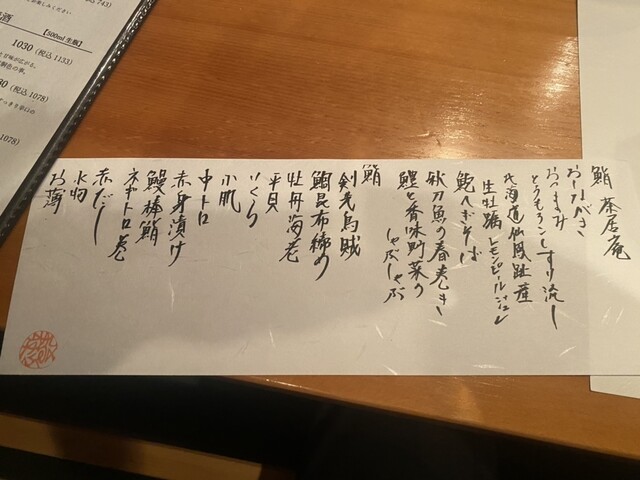 鮨 茶居庵
おしながき
おつまみ
とうもろこしすり流し
北海道仙鳳趾産
生牡蠣 レモンピールジュレ
鮑へぎそば
秋刀魚の春巻き
鱧と香味野菜の
しゃぶしゃぶ
鮨
剣先烏賊
鯛昆布締め
牡丹海老
平貝
いくら
小肌
中トロ
赤身漬け
鰻棒鮨
ネギトロ巻
赤だし
水物
お薄
酒
【500ml 生瓶】
1030 (税込 1133)
(税込 1078)
1078)